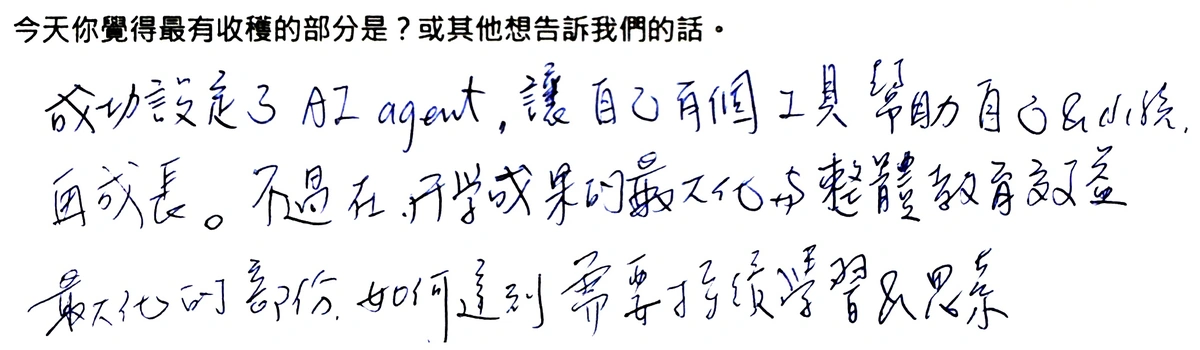 今天你覺得最有收穫的部分是？或其他想告訴我們的話。
成功設定了 AI agent, 讓自己有個工具幫助自己&小孩,
再成長。不過在升学成果的最大化与整體教育效益
最大化的部份, 如何達到需要持續學習&思索